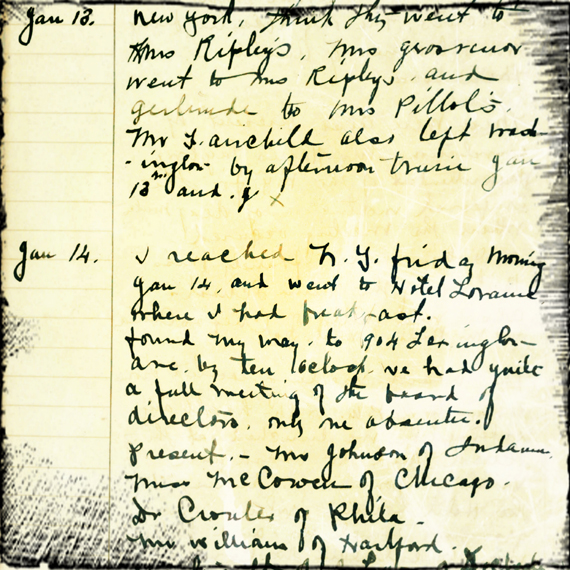 Jan 13. New York, think they went to
Mrs Ripley's, Mrs Grosvenor
went to Mrs Ripleys and
Gertrude to Mrs
Mr Fairchild also left Wash-
-ington by afternoon train Jan
13th and. g x
Jan 14. I reached N. Y. friday morning
Jan 14, and went to Hotel Lorraine
where I had breakfast.
found my way to 904 Lexington
ave. by ten oclock we had quite
a full meeting of the board of
directors. only one absentee.
Present. - Mr Johnson of Indiana
Miss McCowen of Chicago.
Dr Crouter of Phila -
Mr Williams of Hartford.